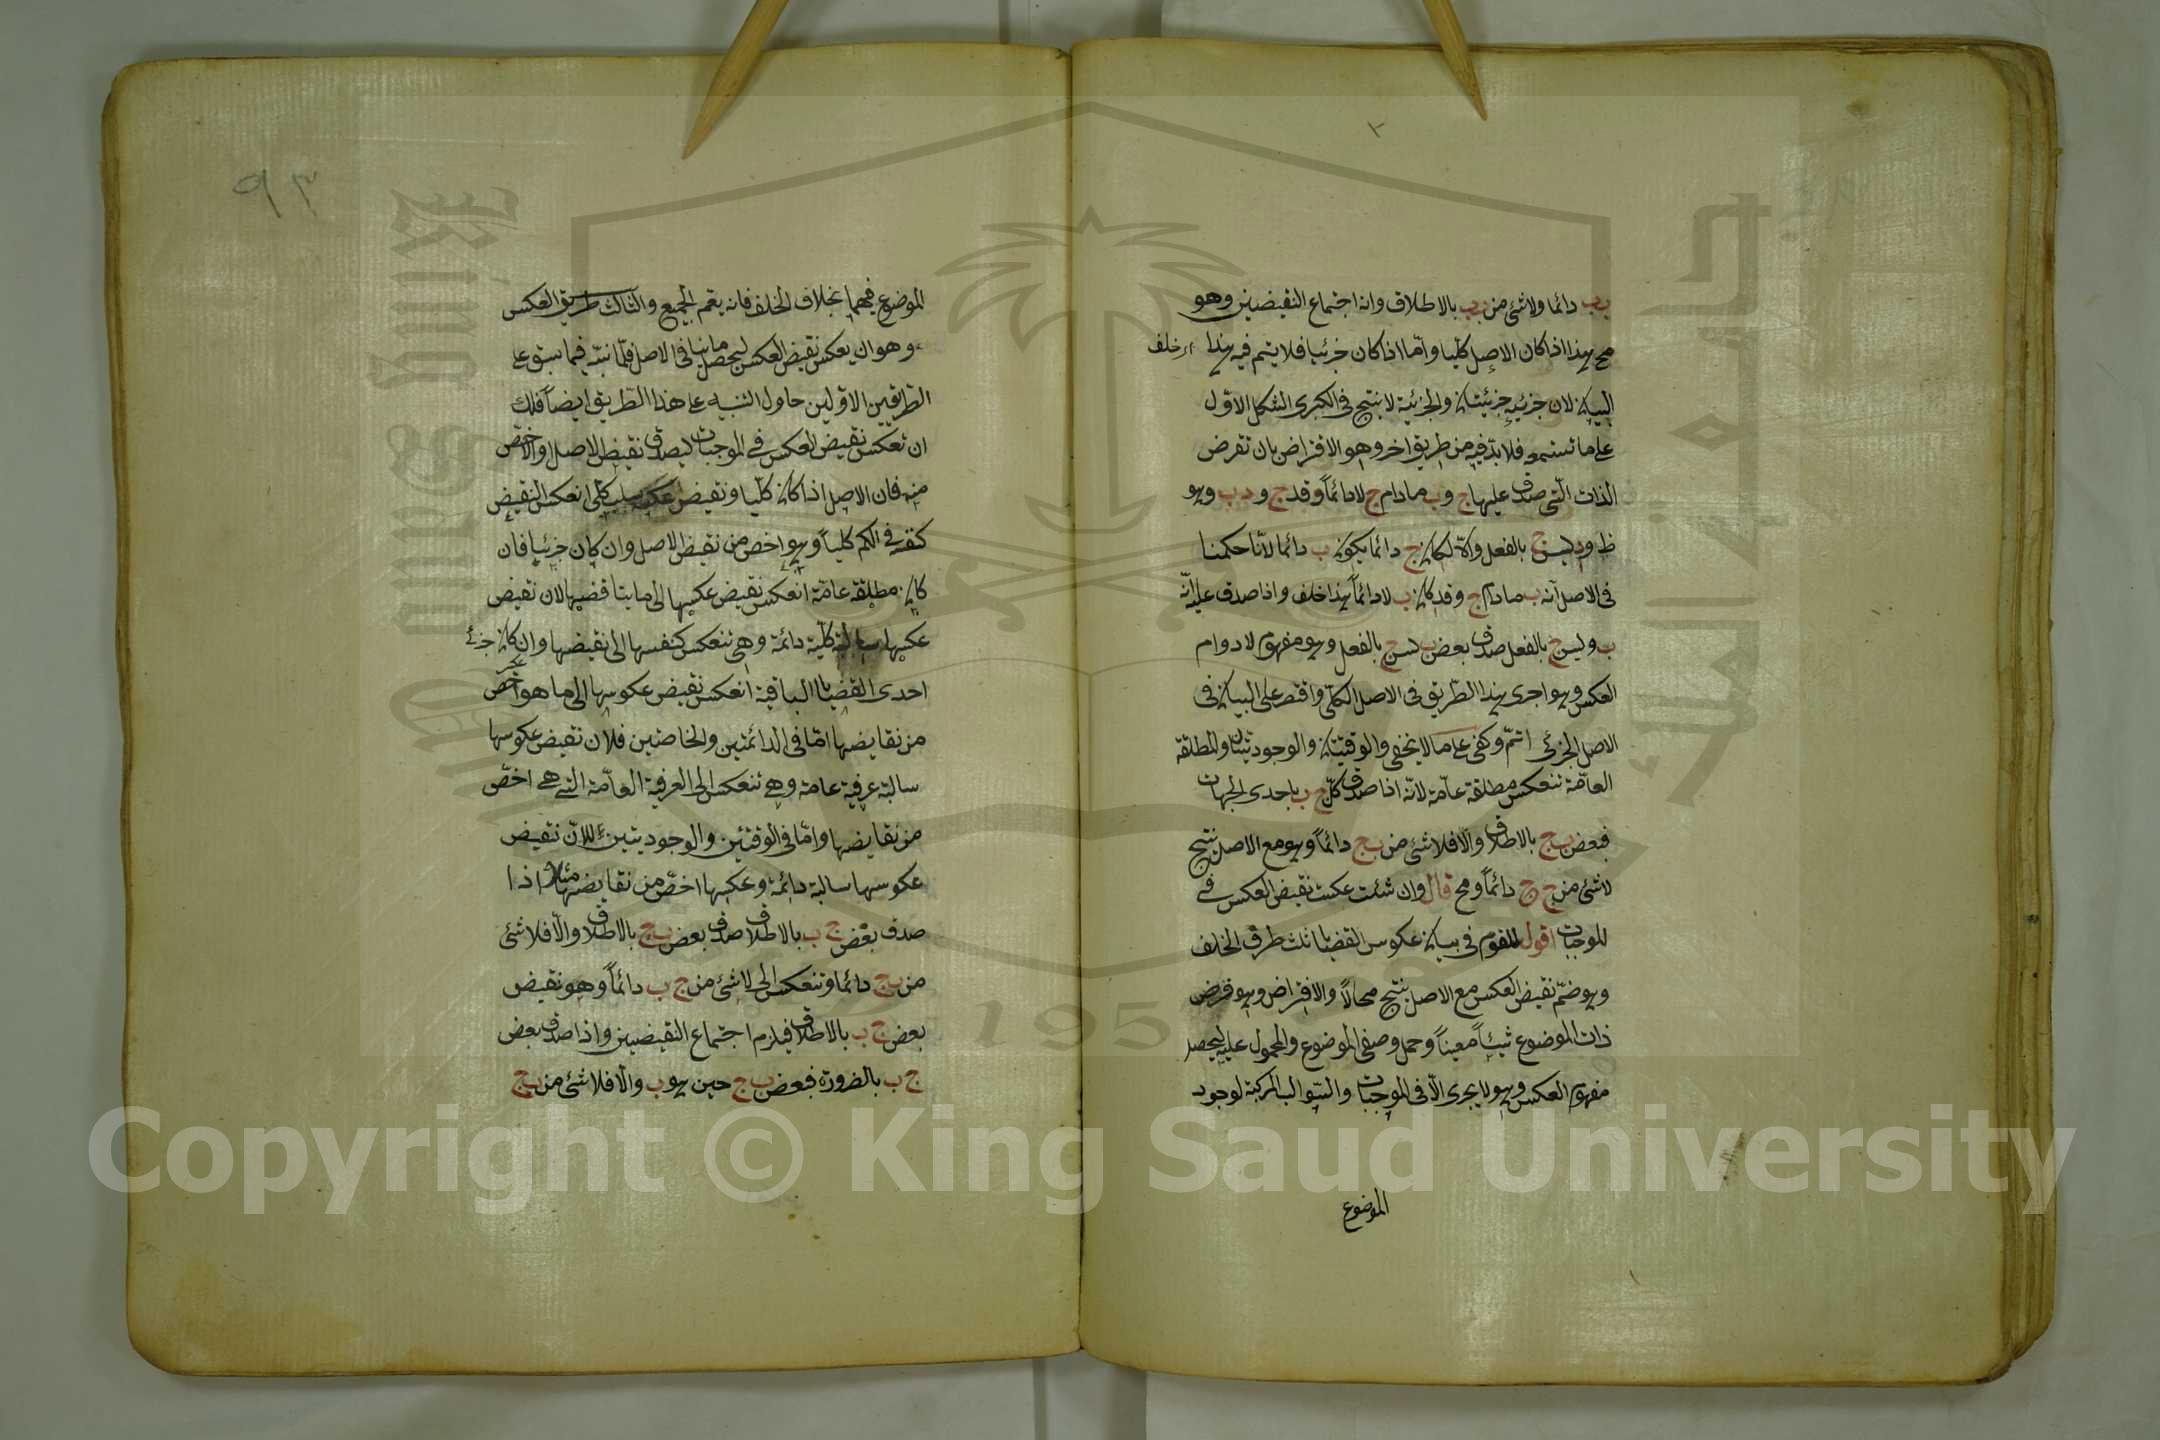 ب ب دائما ولا شئ من ب ب بالاطلاق وانه اجتماع النقيضين وهو
مح هذا اذا كان الاصل كليا واما اذا كان جزئيا فلا يتم فيه هذا
البيان لان جزئيه جزئيتان والجزئية لا ينتج في الكبرى الشكل الاول
على ما تسمعه فلا بد فيه من طريق اخر وهو الافتراض بان تفرض
الذات التى صدق عليها ج و ب مادام ج لا دائماً وقد ج و د ب وهو
ظ و د ليس ج بالفعل والا لكان ج دائما يكون ب دائما لانا حكمنا
فى الاصل انه ب مادام ج وقد كان ب لا دائماً هذا خلف واذا صدق عليه انه
ب وليس ج بالفعل صدق بعض ب ليس ج بالفعل وهو مفهوم لا دوام
العكس ولو اجرى هذا الطريق فى الاصل الكلى واقتصر على البيان فى
الاصل الجزئى اتم وكفى على ما لا يخفى والوقتيتان والوجوديتان والمطلقة
العامة تنعكس مطلقة عامة لانه اذا صدق كل ج ب باحدى الجهات
فبعض ب ج بالاطلاق والا فلا شئ من ب ج دائماً وهو مع الاصل ينتج
لا شئ من ج ج دائماً ومح قال وان شئت عكست نقيض العكس فى
الموجبات اقول للقوم فى بيان عكوس القضايا ثلث طرق الخلف
وهو ضم نقيض العكس مع الاصل ينتج محالاً والافتراض وهو فرض
ذات الموضوع شيئاً معيناً وحمل وصفى الموضوع والمحمول عليه ليحصل
مفهوم العكس وهو لا يجرى الا فى الموجبات والسوالب المركبة لوجود
الموضوع
٩٣
الموضوع فيهما بخلاف الخلف فانه يعم الجميع والثالث طريق العكس
وهو ان يعكس نقيض العكس ليحصل ما ينافى الاصل فلما نبه فيما سبق على
الطريقين الاولين حاول التنبيه على هذا الطريق ايضاً فلك
ان تعكس نقيض العكس فى الموجبات ليصدق نقيض الاصل او الاخص
منه فان الاصل اذا كان كليا ونقيض عكسه سلب كلى انعكس النقيض
كنفسه فى الكم كلياً وهو اخص من نقيض الاصل وان كان جزئيا فان
كان مطلقة عامة انعكس نقيض عكسها الى ما يناقضها لان نقيض
عكسها سالبة كلية دائمة وهى تنعكس كنفسها الى نقيضها وان كان
احدى القضايا الباقية انعكس نقيض عكوسها الى ما هو اخص
من نقايضها اما فى الدائمتين والخاصتين فلان نقيض عكوسها
سالبة عرفية عامة وهى تنعكس الى العرفية العامة التى هى اخص
من نقايضها واما فى الوقتيتين والوجوديتين فلان نقيض
عكوسها سالبة دائمة وعكسها اخص من نقايضها مثلا اذا
صدق بعض ج ب بالاطلاق صدق بعض ب ج بالاطلاق والا فلا شئ
من ب ج دائما وتنعكس الى لا شئ من ج ب دائماً وهو نقيض
بعض ج ب بالاطلاق فيلزم اجتماع النقيضين واذا صدق بعض
ج ب بالضرورة فبعض ب ج حين هو ب والا فلا شئ من ب ج
Copyright © King Saud University